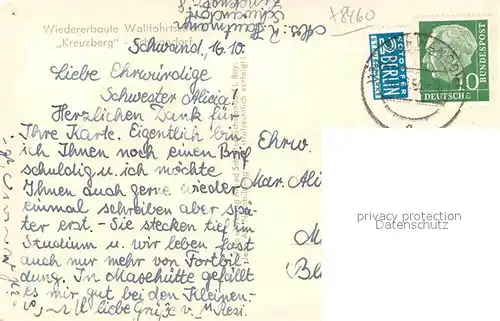 Wiedererbaute Wallfahrtskirche
„Kreuzberg" - Schwandorf
Schwand, 16.10.
Liebe Ehrwürdige
Schwester Alicia!
Herzlichen Dank für
Ihre Karte. Eigentlich bin
ich Ihnen noch einen Brief
schuldig u. ich möchte
Ihnen auch gerne wieder
einmal schreiben aber spä-
ter erst. - Sie stecken tief im
Studium u. wir leben fast
auch nur mehr von Fortbil-
dung. In Maxhütte gefällt
es mir gut bei den Kleinen.
liebe Grüße v. M. Resi.
Schwandorf
+8460
NOTOPFER
2 BERLIN
STEUERMARKE
10
DEUTSCHE BUNDESPOST
Ehrw.
Mar. Ali
M
(Bl
privacy protection
Datenschutz